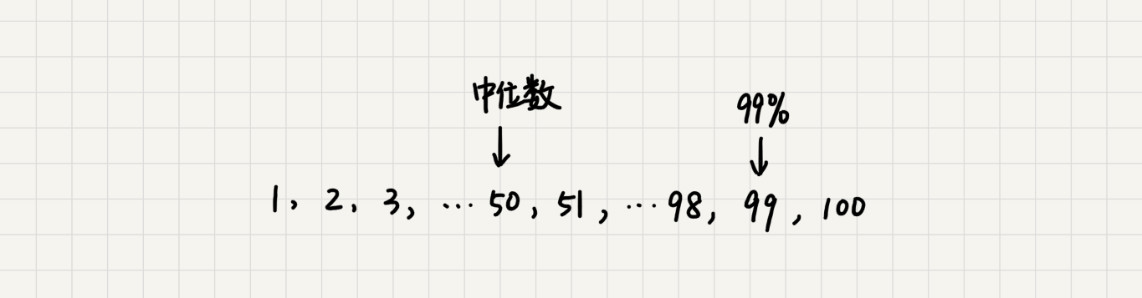 中位数
99%
1, 2, 3, … 50, 51, … 98, 99, 100